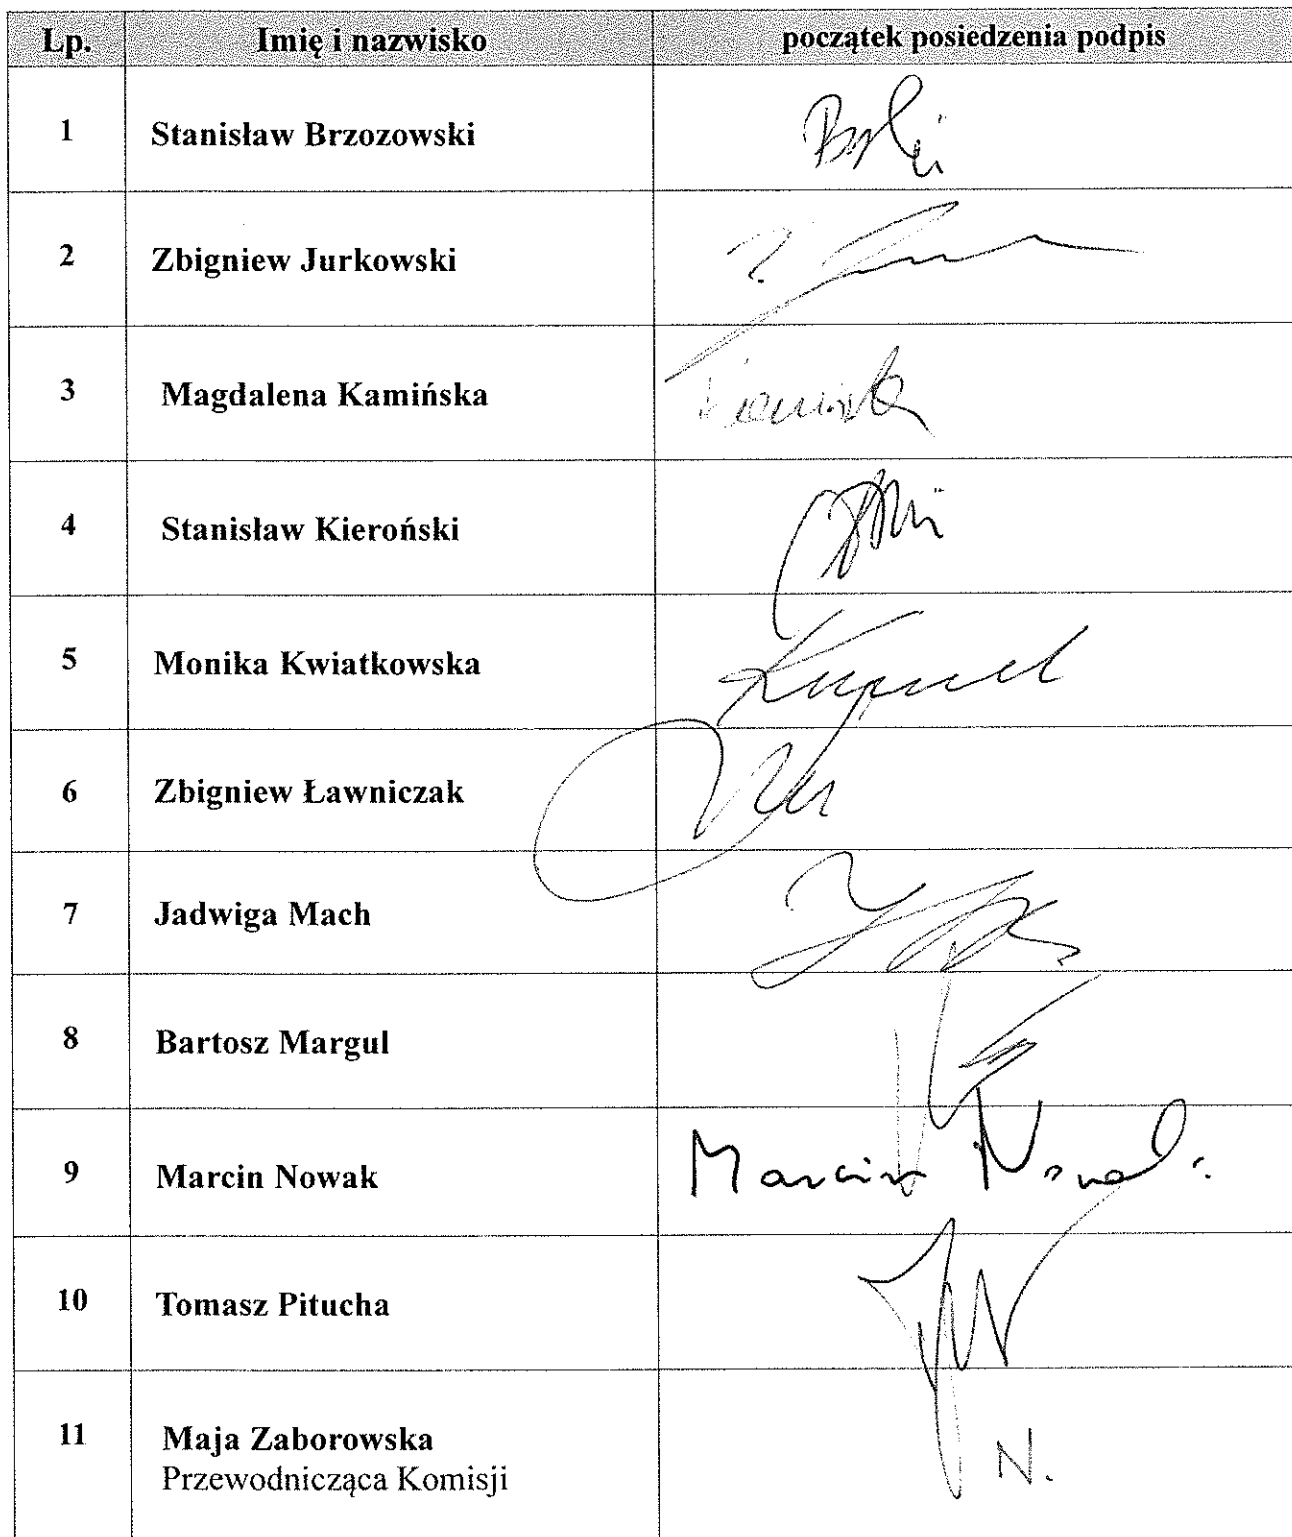 Lp. Imię i nazwisko początek posiedzenia podpis
1 Stanisław Brzozowski
2 Zbigniew Jurkowski
3 Magdalena Kamińska
4 Stanisław Kieroński
5 Monika Kwiatkowska
6 Zbigniew Ławniczak
7 Jadwiga Mach
8 Bartosz Margul
9 Marcin Nowak Marcin Nowak
10 Tomasz Pitucha
11 Maja Zaborowska
Przewodnicząca Komisji N.